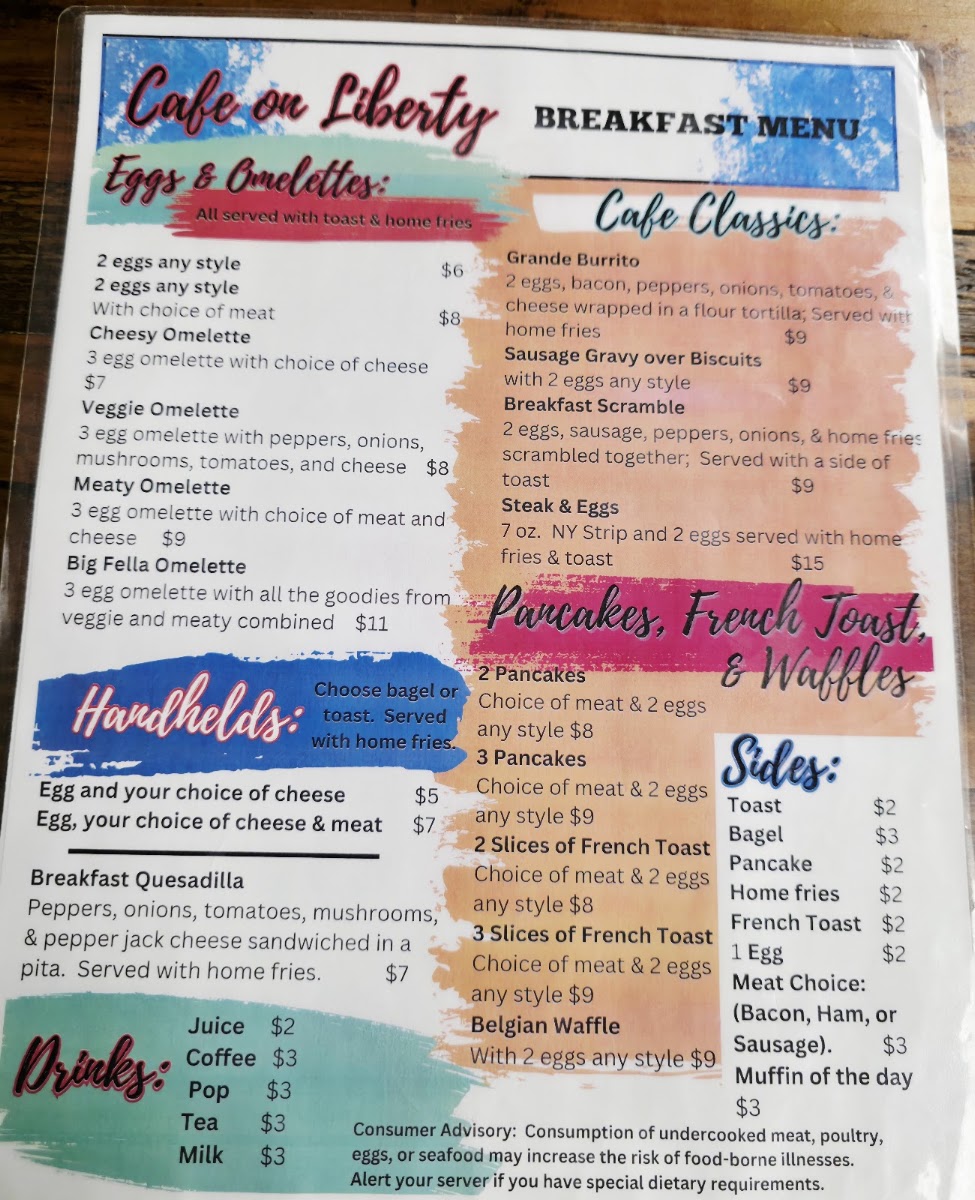 Cafe on Liberty
BREAKFAST MENU
Eggs & Omelettes:
All served with toast & home fries
2 eggs any style $6
2 eggs any style
With choice of meat $8
Cheesy Omelette
3 egg omelette with choice of cheese
$7
Veggie Omelette
3 egg omelette with peppers, onions,
mushrooms, tomatoes, and cheese $8
Meaty Omelette
3 egg omelette with choice of meat and
cheese $9
Big Fella Omelette
3 egg omelette with all the goodies from
veggie and meaty combined $11
Handhelds:
Choose bagel or
toast. Served
with home fries.
Egg and your choice of cheese $5
Egg, your choice of cheese & meat $7
Breakfast Quesadilla
Peppers, onions, tomatoes, mushrooms,
& pepper jack cheese sandwiched in a
pita. Served with home fries. $7
Drinks:
Juice $2
Coffee $3
Pop $3
Tea $3
Milk $3
Cafe Classics:
Grande Burrito
2 eggs, bacon, peppers, onions, tomatoes, &
cheese wrapped in a flour tortilla; Served with
home fries $9
Sausage Gravy over Biscuits
with 2 eggs any style $9
Breakfast Scramble
2 eggs, sausage, peppers, onions, & home fries
scrambled together; Served with a side of
toast $9
Steak & Eggs
7 oz. NY Strip and 2 eggs served with home
fries & toast $15
Pancakes, French Toast,
& Waffles
2 Pancakes
Choice of meat & 2 eggs
any style $8
3 Pancakes
Choice of meat & 2 eggs
any style $9
2 Slices of French Toast
Choice of meat & 2 eggs
any style $8
3 Slices of French Toast
Choice of meat & 2 eggs
any style $9
Belgian Waffle
With 2 eggs any style $9
Sides:
Toast $2
Bagel $3
Pancake $2
Home fries $2
French Toast $2
1 Egg $2
Meat Choice:
(Bacon, Ham, or
Sausage). $3
Muffin of the day
$3
Consumer Advisory: Consumption of undercooked meat, poultry,
eggs, or seafood may increase the risk of food-borne illnesses.
Alert your server if you have special dietary requirements.